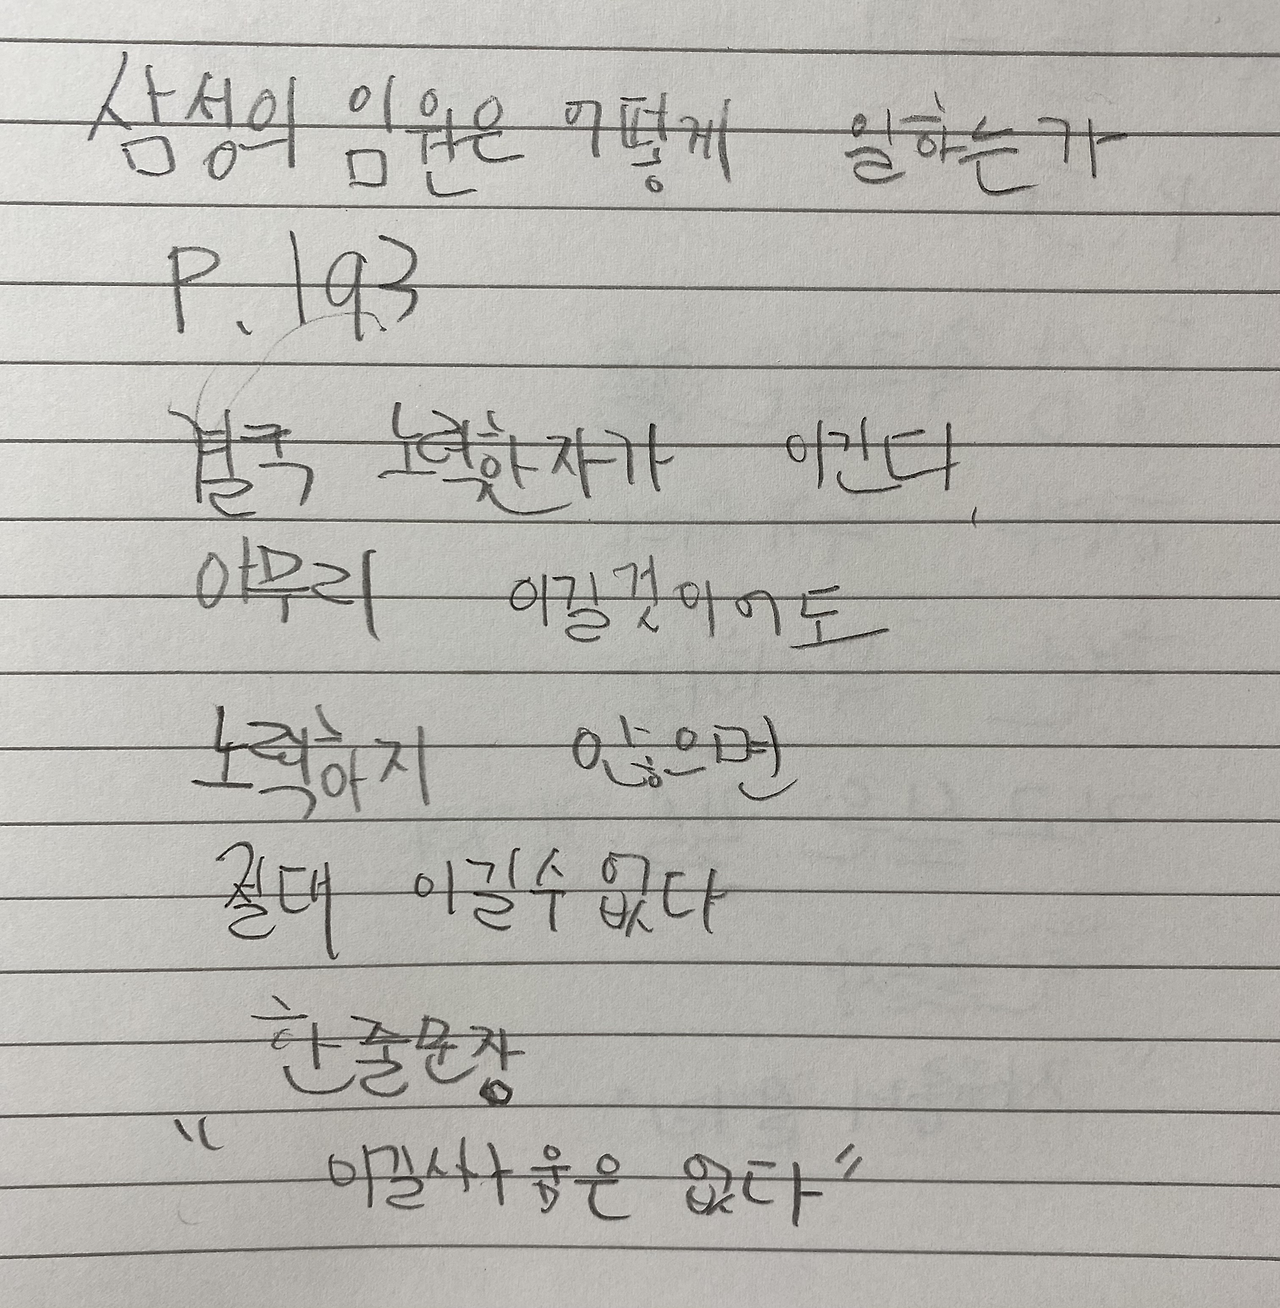 삼성의 임원은 어떻게 일하는가
P. 193
결국 노력한자가 이긴다.
아무리 이길것이어도
노력하지 않으면
절대 이길수 없다
한줄문장
"이길사움은 없다"